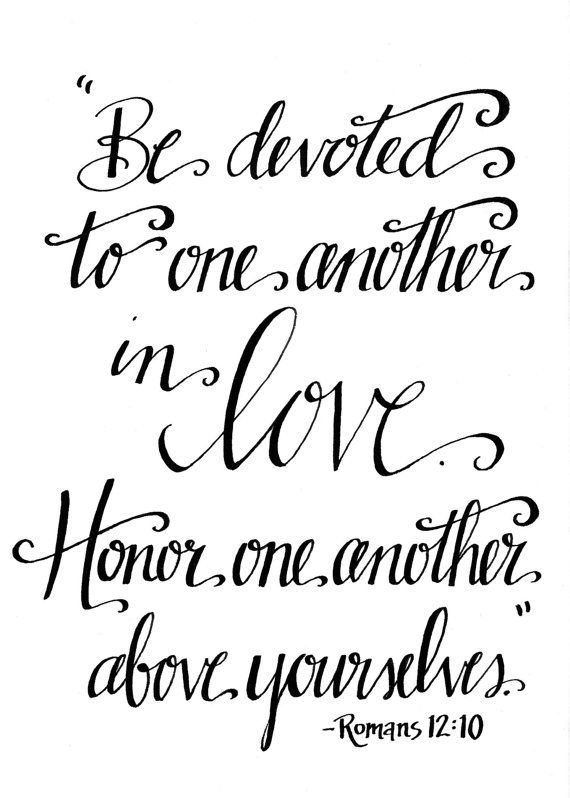 "Be devoted
to one another
in love.
Honor one another
above yourselves."
-Romans 12:10